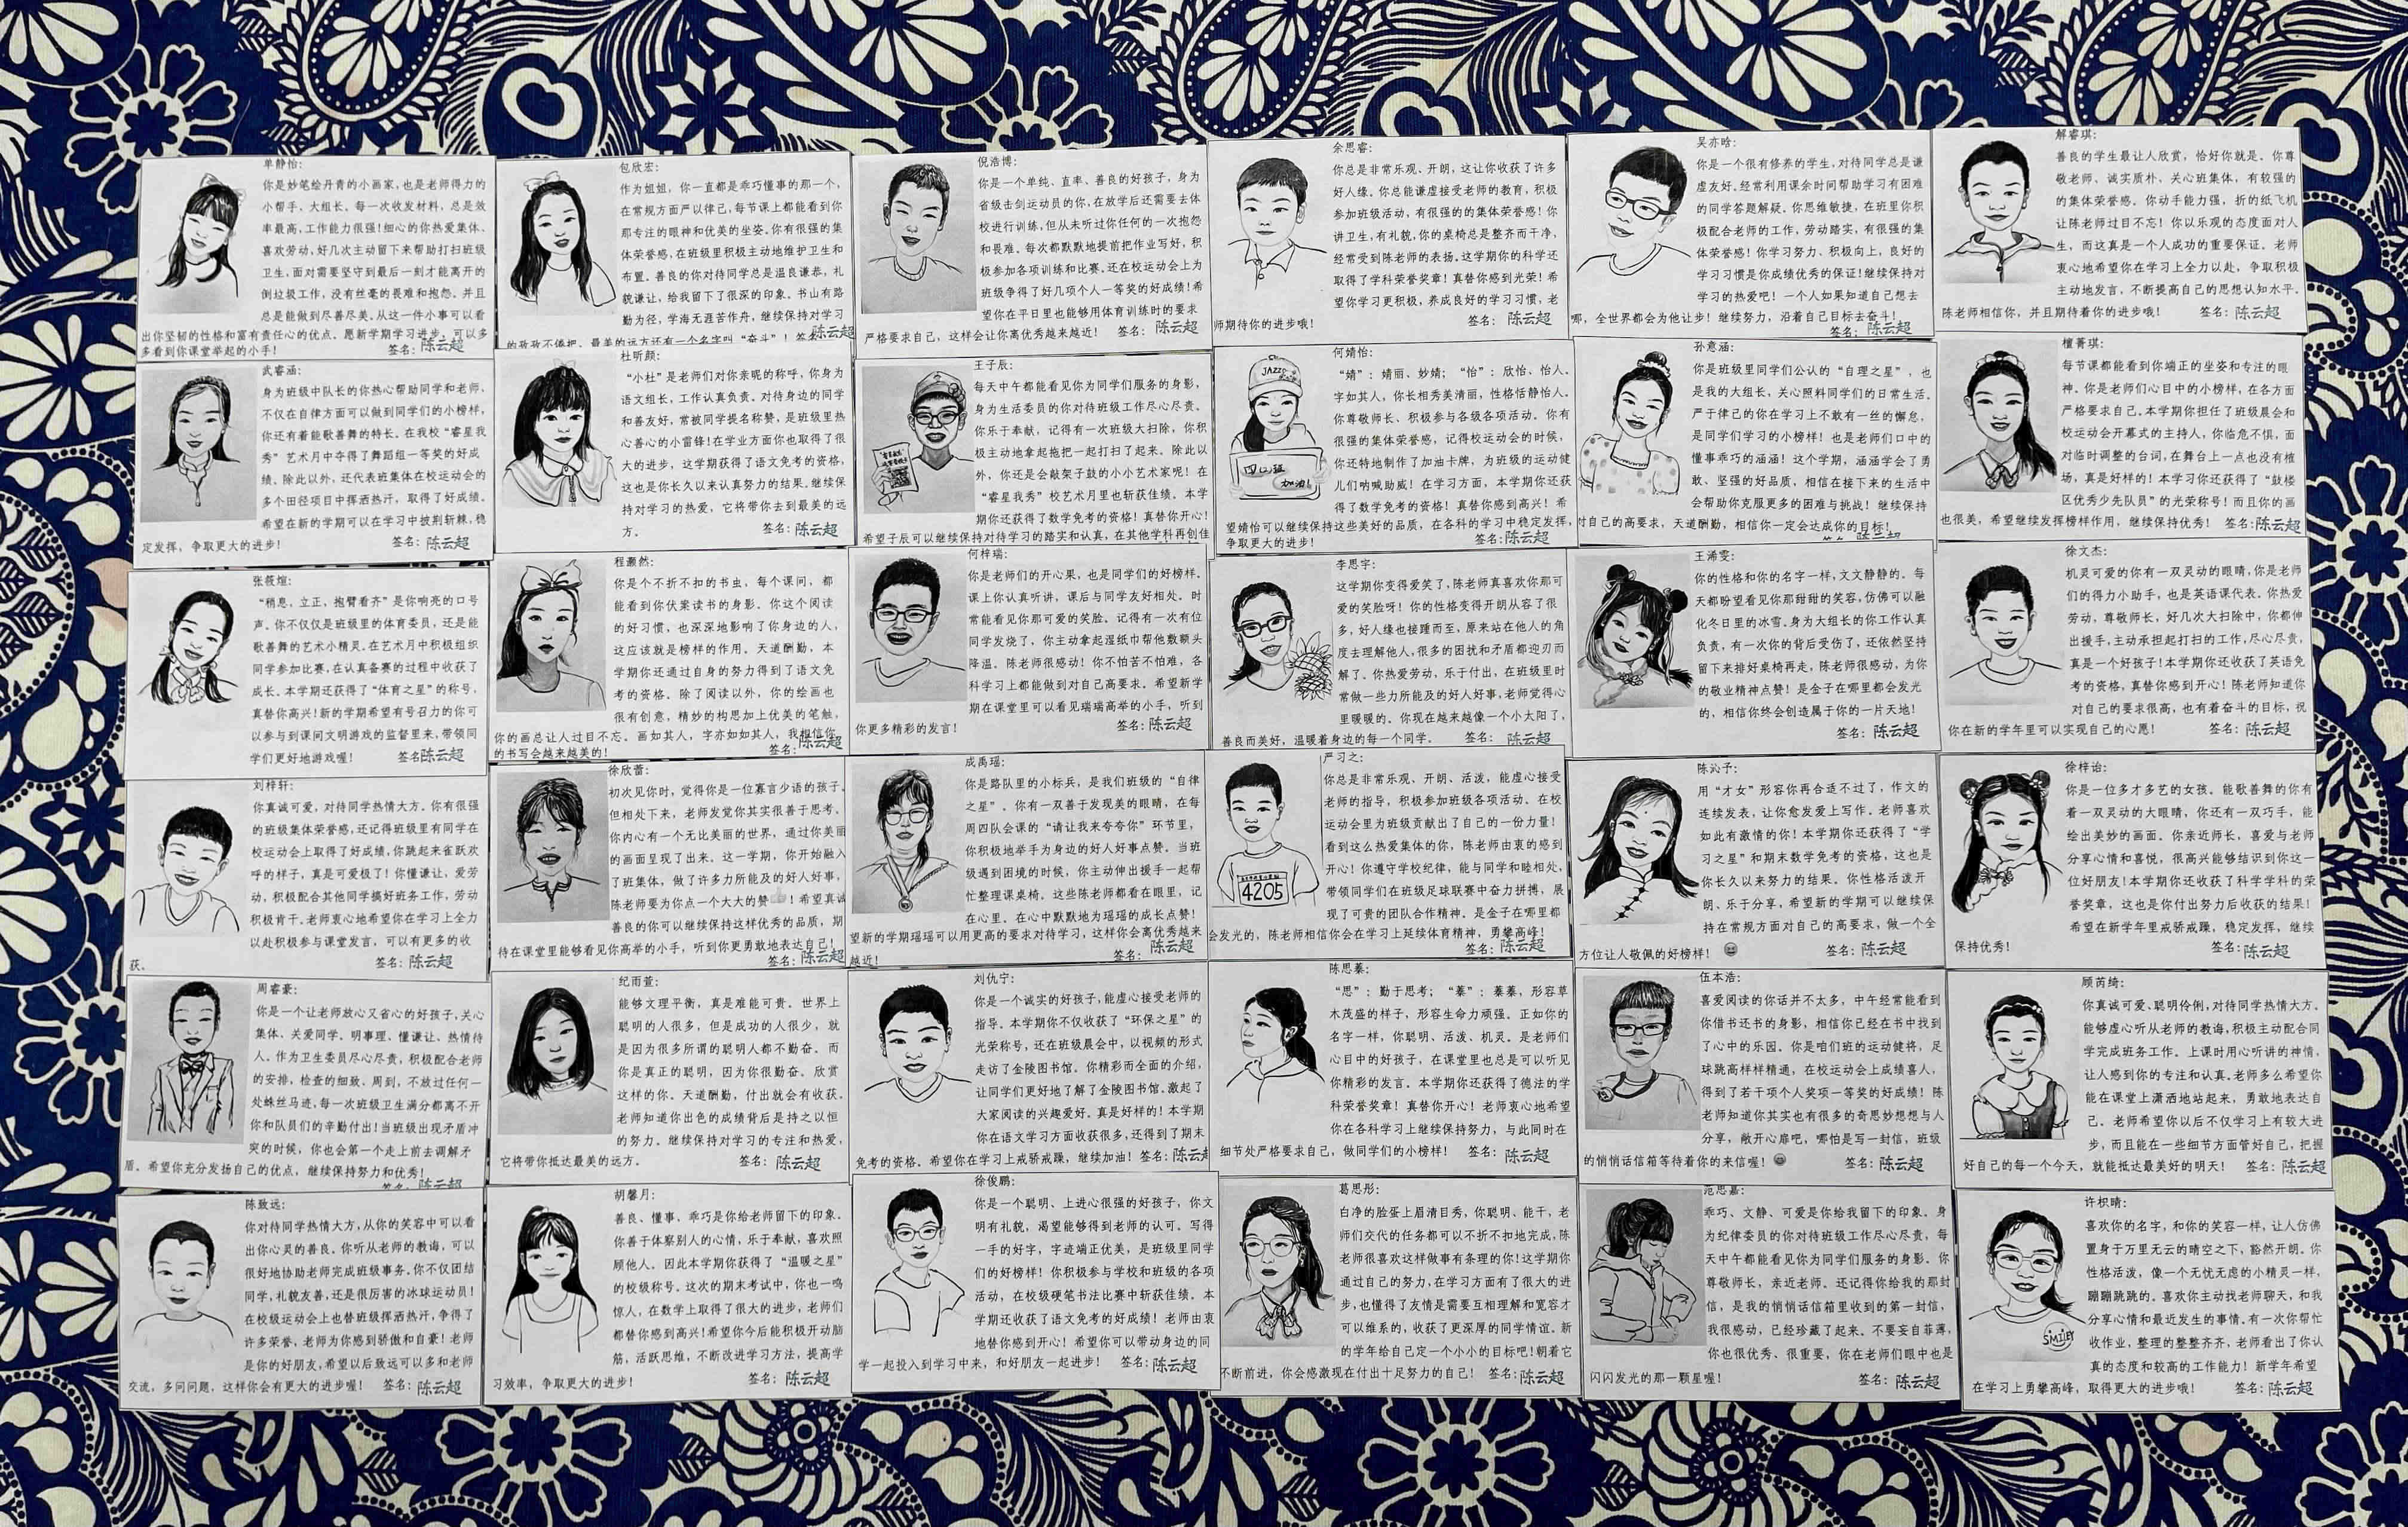 单静怡:
你是妙笔绘丹青的小画家,也是老师得力的
小帮手、大组长。每一次收发材料,总是效
率最高,工作能力很强!细心的你热爱集体、
喜欢劳动,好几次主动留下来帮助打扫班级
卫生,面对需要坚守到最后一刻才能离开的
倒垃圾工作,没有丝毫的畏难和抱怨。并且
总是能做到尽善尽美。从这一件小事可以看
出你坚韧的性格和富有责任心的优点。愿新学期学习进步。可以多
多看到你课堂举起的小手!
签名:陈云超
包欣宏:
作为姐姐,你一直都是乖巧懂事的那一个,
在常规方面严以律己,每节课上都能看到你
那专注的眼神和优美的坐姿。你有很强的集
体荣誉感,在班级里积极主动地维护卫生和
布置。善良的你对待同学总是温良谦恭,礼
貌谦让,给我留下了很深的印象。书山有路
勤为径,学海无涯苦作舟,继续保持对学习
的孜孜不倦把。最美的远方还有一个名字叫“奋斗”!签名:陈云超
倪浩博:
你是一个单纯、直率、善良的好孩子,身为
省级击剑运动员的你,在放学后还需要去体
校进行训练,但从未听过你任何的一次抱怨
和畏难。每次都默默地提前把作业写好,积
极参加各项训练和比赛。还在校运动会上为
班级争得了好几项个人一等奖的好成绩!希
望你在平日里也能够用体育训练时的要求
严格要求自己,这样会让你离优秀越来越近! 签名:陈云超
余思睿:
你总是非常乐观、开朗,这让你收获了许多
好人缘。你总能谦虚接受老师的教育,积极
参加班级活动,有很强的的集体荣誉感!你
讲卫生,有礼貌,你的桌椅总是整齐而干净,
经常受到陈老师的表扬。这学期你的科学还
取得了学科荣誉奖章!真替你感到光荣!希
望你学习更积极,养成良好的学习习惯,老
师期待你的进步哦! 签名:陈云超
吴亦晗:
你是一个很有修养的学生,对待同学总是谦
虚友好,经常利用课余时间帮助学习有困难
的同学答题解疑。你思维敏捷,在班里你积
极配合老师的工作,劳动踏实,有很强的集
体荣誉感!你学习努力、积极向上,良好的
学习习惯是你成绩优秀的保证!继续保持对
学习的热爱吧! 一个人如果知道自己想去
哪,全世界都会为他让步!继续努力,沿着自己目标去奋斗!
签名:陈云超
解睿琪:
善良的学生最让人欣赏,恰好你就是。你尊
敬老师、诚实质朴、关心班集体,有较强的
的集体荣誉感。你动手能力强,折的纸飞机
让陈老师过目不忘!你以乐观的态度面对人
生,而这真是一个人成功的重要保证。老师
衷心地希望你在学习上全力以赴,争取积极
主动地发言,不断提高自己的思想认知水平。
陈老师相信你,并且期待着你的进步哦! 签名:陈云超
武睿涵:
身为班级中队长的你热心帮助同学和老师,
不仅在自律方面可以做到同学们的小榜样,
你还有着能歌善舞的特长。在我校“睿星我
秀”艺术月中夺得了舞蹈组一等奖的好成
绩。除此以外,还代表班集体在校运动会的
多个田径项目中挥洒热汗,取得了好成绩。
希望在新的学期可以在学习中披荆斩棘,稳
定发挥,争取更大的进步! 签名:陈云超
杜昕颜:
“小杜”是老师们对你亲昵的称呼,你身为
语文组长,工作认真负责。对待身边的同学
和善友好,常被同学提名称赞,是班级里热
心善心的小雷锋!在学业方面你也取得了很
大的进步,这学期获得了语文免考的资格,
这也是你长久以来认真努力的结果。继续保
持对学习的热爱,它将带你去到最美的远
方。 签名:陈云超
王子辰:
每天中午都能看见你为同学们服务的身影,
身为生活委员的你对待班级工作尽心尽责。
你乐于奉献,记得有一次班级大扫除,你积
极主动地拿起拖把一起打扫了起来。除此以
外,你还是会敲架子鼓的小小艺术家呢!在
“睿星我秀”校艺术月里也斩获佳绩。本学
期你还获得了数学免考的资格!真替你开心!
希望子辰可以继续保持对待学习的踏实和认真,在其他学科再创佳
何婧怡:
“婧”:婧丽、妙婧;“怡”:欣怡、怡人。
字如其人,你长相秀美清丽,性格恬静怡人。
你尊敬师长,积极参与各级各项活动。你有
很强的集体荣誉感,记得校运动会的时候,
你还特地制作了加油卡牌,为班级的运动健
儿们呐喊助威!在学习方面,本学期你还获
得了数学免考的资格!真替你感到高兴!希
望婧怡可以继续保持这些美好的品质,在各科的学习中稳定发挥,
争取更大的进步! 签名:陈云超
JAZZ
四(2)班
加油!
孙意涵:
你是班级里同学们公认的“自理之星”,也
是我的大组长,关心照料同学们的日常生活。
严于律己的你在学习上不敢有一丝的懈怠,
是同学们学习的小榜样!也是老师们口中的
懂事乖巧的涵涵!这个学期,涵涵学会了勇
敢、坚强的好品质,相信在接下来的生活中
会帮助你克服更多的困难与挑战!继续保持
对自己的高要求,天道酬勤,相信你一定会达成你的目标!
檀菁琪:
每节课都能看到你端正的坐姿和专注的眼
神。你是老师们心目中的小榜样,在各方面
严格要求自己。本学期你担任了班级晨会和
校运动会开幕式的主持人,你临危不惧,面
对临时调整的台词,在舞台上一点也没有怯
场,真是好样的!本学习你还获得了“鼓楼
区优秀少先队员”的光荣称号!而且你的画
也很美,希望继续发挥榜样作用,继续保持优秀! 签名:陈云超
张筱煊:
“稍息,立正,抱臂看齐”是你响亮的口号
声。你不仅仅是班级里的体育委员,还是能
歌善舞的艺术小精灵。在艺术月中积极组织
同学参加比赛,在认真备赛的过程中收获了
成长。本学期还获得了“体育之星”的称号,
真替你高兴!新的学期希望有号召力的你可
以参与到课间文明游戏的监督里来,带领同
学们更好地游戏喔! 签名陈云超
程灏然:
你是个不折不扣的书虫,每个课间,都
能看到你伏案读书的身影。你这个阅读
的好习惯,也深深地影响了你身边的人,
这应该就是榜样的作用。天道酬勤,本
学期你还通过自身的努力得到了语文免
考的资格。除了阅读以外,你的绘画也
很有创意,精妙的构思加上优美的笔触,
你的画总让人过目不忘。画如其人,字亦如如其人,我相信你
的书写会越来越美的! 签名:陈云超
何梓瑞:
你是老师们的开心果,也是同学们的好榜样。
课上你认真听讲,课后与同学友好相处。时
常能看见你那可爱的笑脸。记得有一次有位
同学发烧了,你主动拿起湿纸巾帮他敷额头
降温。陈老师很感动!你不怕苦不怕难,各
科学习上都能做到对自己高要求。希望新学
期在课堂里可以看见瑞瑞高举的小手,听到
你更多精彩的发言! 签名:陈云超
李思宇:
这学期你变得爱笑了,陈老师真喜欢你那可
爱的笑脸呀!你的性格变得开朗从容了很
多,好人缘也接踵而至,原来站在他人的角
度去理解他人,很多的困扰和矛盾都迎刃而
解了。你热爱劳动,乐于付出,在班级里时
常做一些力所能及的好人好事,老师觉得心
里暖暖的。你现在越来越像一个小太阳了,
善良而美好,温暖着身边的每一个同学。 签名:陈云超
王浠雯:
你的性格和你的名字一样,文文静静的。每
天都盼望看见你那甜甜的笑容,仿佛可以融
化冬日里的冰雪。身为大组长的你工作认真
负责,有一次你的背后受伤了,还依然坚持
留下来排好桌椅再走,陈老师很感动,为你
的敬业精神点赞!是金子在哪里都会发光
的,相信你终会创造属于你的一片天地!
签名:陈云超
徐文杰:
机灵可爱的你有一双灵动的眼睛,你是老师
们的得力小助手,也是英语课代表。你热爱
劳动,尊敬师长,好几次大扫除中,你都伸
出援手,主动承担起打扫的工作,尽心尽责,
真是一个好孩子!本学期你还收获了英语免
考的资格,真替你感到开心!陈老师知道你
对自己的要求很高,也有着奋斗的目标,祝
你在新的学年里可以实现自己的心愿! 签名:陈云超
刘梓轩:
你真诚可爱,对待同学热情大方。你有很强
的班级集体荣誉感,还记得班级里有同学在
校运动会上取得了好成绩,你跳起来雀跃欢
呼的样子,真是可爱极了!你懂谦让,爱劳
动,积极配合其他同学搞好班务工作,劳动
积极肯干。老师衷心地希望你在学习上全力
以赴积极参与课堂发言,可以有更多的收
获。 签名:陈云超
徐欣蕾:
初次见你时,觉得你是一位寡言少语的孩子。
但相处下来,老师发觉你其实很善于思考、
你内心有一个无比美丽的世界,通过你美丽
的画面呈现了出来。这一学期,你开始融入
了班集体,做了许多力所能及的好人好事,
陈老师要为你点一个大大的赞👍!希望真诚
善良的你可以继续保持这样优秀的品质,期
待在课堂里能够看见你高举的小手,听到你更勇敢地表达自己!
签名:陈云超
成禹瑶:
你是路队里的小标兵,是我们班级的“自律
之星”。你有一双善于发现美的眼睛,在每
周四队会课的“请让我来夸夸你”环节里,
你积极地举手为身边的好人好事点赞。当班
级遇到困境的时候,你主动伸出援手一起帮
忙整理课桌椅。这些陈老师都看在眼里,记
在心里。在心中默默地为瑶瑶的成长点赞!
望新的学期瑶瑶可以用更高的要求对待学习,这样你会离优秀越来
越近! 签名:陈云超
严习之:
你总是非常乐观、开朗、活泼,能虚心接受
老师的指导,积极参加班级各项活动。在校
运动会里为班级贡献出了自己的一份力量!
看到这么热爱集体的你,陈老师由衷的感到
开心!你遵守学校纪律,能与同学和睦相处,
带领同学们在班级足球联赛中奋力拼搏,展
现了可贵的团队合作精神。是金子在哪里都
会发光的,陈老师相信你会在学习上延续体育精神,勇攀高峰!
签名:陈云超
4205
陈沁予:
用“才女”形容你再合适不过了,作文的
连续发表,让你愈发爱上写作。老师喜欢
如此有激情的你!本学期你还获得了“学
习之星”和期末数学免考的资格,这也是
你长久以来努力的结果。你性格活泼开
朗、乐于分享,希望新的学期可以继续保
持在常规方面对自己的高要求,做一个全
方位让人敬佩的好榜样! 签名:陈云超
徐梓诒:
你是一位多才多艺的女孩。能歌善舞的你有
着一双灵动的大眼睛,你还有一双巧手,能
绘出美妙的画面。你亲近师长,喜爱与老师
分享心情和喜悦,很高兴能够结识到你这一
位好朋友!本学期你还收获了科学学科的荣
誉奖章,这也是你付出努力后收获的结果!
希望在新学年里戒骄戒躁,稳定发挥,继续
保持优秀! 签名:陈云超
周睿豪:
你是一个让老师放心又省心的好孩子,关心
集体、关爱同学。明事理、懂谦让、热情待
人。作为卫生委员尽心尽责,积极配合老师
的安排,检查的细致、周到,不放过任何一
处蛛丝马迹,每一次班级卫生满分都离不开
你和队员们的辛勤付出!当班级出现矛盾冲
突的时候,你也会第一个走上前去调解矛
盾。希望你充分发扬自己的优点,继续保持努力和优秀!
纪雨萱:
能够文理平衡,真是难能可贵。世界上
聪明的人很多,但是成功的人很少,就
是因为很多所谓的聪明人都不勤奋。而
你是真正的聪明,因为你很勤奋。欣赏
这样的你。天道酬勤,付出就会有收获。
老师知道你出色的成绩背后是持之以恒
的努力。继续保持对学习的专注和热爱,
它将带你抵达最美的远方。 签名:陈云超
刘仇宁:
你是一个诚实的好孩子,能虚心接受老师的
指导。本学期你不仅收获了“环保之星”的
光荣称号,还在班级晨会中,以视频的形式
走访了金陵图书馆。你精彩而全面的介绍,
让同学们更好地了解了金陵图书馆,激起了
大家阅读的兴趣爱好。真是好样的!本学期
你在语文学习方面收获很多,还得到了期末
免考的资格。希望你在学习上戒骄戒躁,继续加油! 签名:陈云
陈思蓁:
“思”:勤于思考;“蓁”:蓁蓁,形容草
木茂盛的样子,形容生命力顽强。正如你的
名字一样,你聪明、活泼、机灵。是老师们
心目中的好孩子,在课堂里也总是可以听见
你精彩的发言。本学期你还获得了德法的学
科荣誉奖章!真替你开心!老师衷心地希望
你在各科学习上继续保持努力,与此同时在
细节处严格要求自己,做同学们的小榜样! 签名:陈云超
伍本浩:
喜爱阅读的你话并不太多,中午经常能看到
你借书还书的身影,相信你已经在书中找到
了心中的乐园。你是咱们班的运动健将,足
球跳高样样精通,在校运动会上成绩喜人,
得到了若干项个人奖项一等奖的好成绩!陈
老师知道你其实也有很多的奇思妙想想与人
分享,敞开心扉吧,哪怕是写一封信,班级
的悄悄话信箱等待着你的来信喔! 签名:陈云超
顾芮绮:
你真诚可爱、聪明伶俐,对待同学热情大方。
能够虚心听从老师的教诲,积极主动配合同
学完成班务工作。上课时用心听讲的神情,
让人感到你的专注和认真。老师多么希望你
能在课堂上潇洒地站起来,勇敢地表达自
己。老师希望你以后不仅学习上有较大进
步,而且能在一些细节方面管好自己,把握
好自己的每一个今天,就能抵达最美好的明天! 签名:陈云超
陈致远:
你对待同学热情大方,从你的笑容中可以看
出你心灵的善良。你听从老师的教诲,可以
很好地协助老师完成班级事务。你不仅团结
同学,礼貌友善,还是很厉害的冰球运动员!
在校级运动会上也替班级挥洒热汗,争得了
许多荣誉,老师为你感到骄傲和自豪!老师
是你的好朋友,希望以后致远可以多和老师
交流,多问问题,这样你会有更大的进步喔! 签名:陈云超
胡馨月:
善良、懂事、乖巧是你给老师留下的印象。
你善于体察别人的心情,乐于奉献,喜欢照
顾他人。因此本学期你获得了“温暖之星”
的校级称号。这次的期末考试中,你也一鸣
惊人,在数学上取得了很大的进步,老师们
都替你感到高兴!希望你今后能积极开动脑
筋,活跃思维,不断改进学习方法,提高学
习效率,争取更大的进步! 签名:陈云超
徐俊鹏:
你是一个聪明、上进心很强的好孩子,你文
明有礼貌,渴望能够得到老师的认可。写得
一手的好字,字迹端正优美,是班级里同学
们的好榜样!你积极参与学校和班级的各项
活动,在校级硬笔书法比赛中斩获佳绩。本
学期还收获了语文免考的好成绩!老师由衷
地替你感到开心!希望你可以带动身边的同
学一起投入到学习中来,和好朋友一起进步! 签名:陈云超
葛思彤:
白净的脸蛋上眉清目秀,你聪明、能干,老
师们交代的任务都可以不折不扣地完成,陈
老师很喜欢这样做事有条理的你!这学期你
通过自己的努力,在学习方面有了很大的进
步,也懂得了友情是需要互相理解和宽容才
可以维系的,收获了更深厚的同学情谊。新
的学年给自己定一个小小的目标吧!朝着它
不断前进,你会感激现在付出十足努力的自己! 签名:陈云超
范思嘉:
乖巧、文静、可爱是你给我留下的印象。身
为纪律委员的你对待班级工作尽心尽责,每
天中午都能看见你为同学们服务的身影。你
尊敬师长,亲近老师。还记得你给我的那封
信,是我的悄悄话信箱里收到的第一封信,
我很感动,已经珍藏了起来。不要妄自菲薄,
你也很优秀、很重要,你在老师们眼中也是
闪闪发光的那一颗星喔! 签名:陈云超
许枳晴:
喜欢你的名字,和你的笑容一样,让人仿佛
置身于万里无云的晴空之下,豁然开朗。你
性格活泼,像一个无忧无虑的小精灵一样,
蹦蹦跳跳的。喜欢你主动找老师聊天,和我
分享心情和最近发生的事情。有一次你帮忙
收作业,整理的整整齐齐,老师看出了你认
真的态度和较高的工作能力!新学年希望
在学习上勇攀高峰,取得更大的进步哦! 签名:陈云超
SMILEY